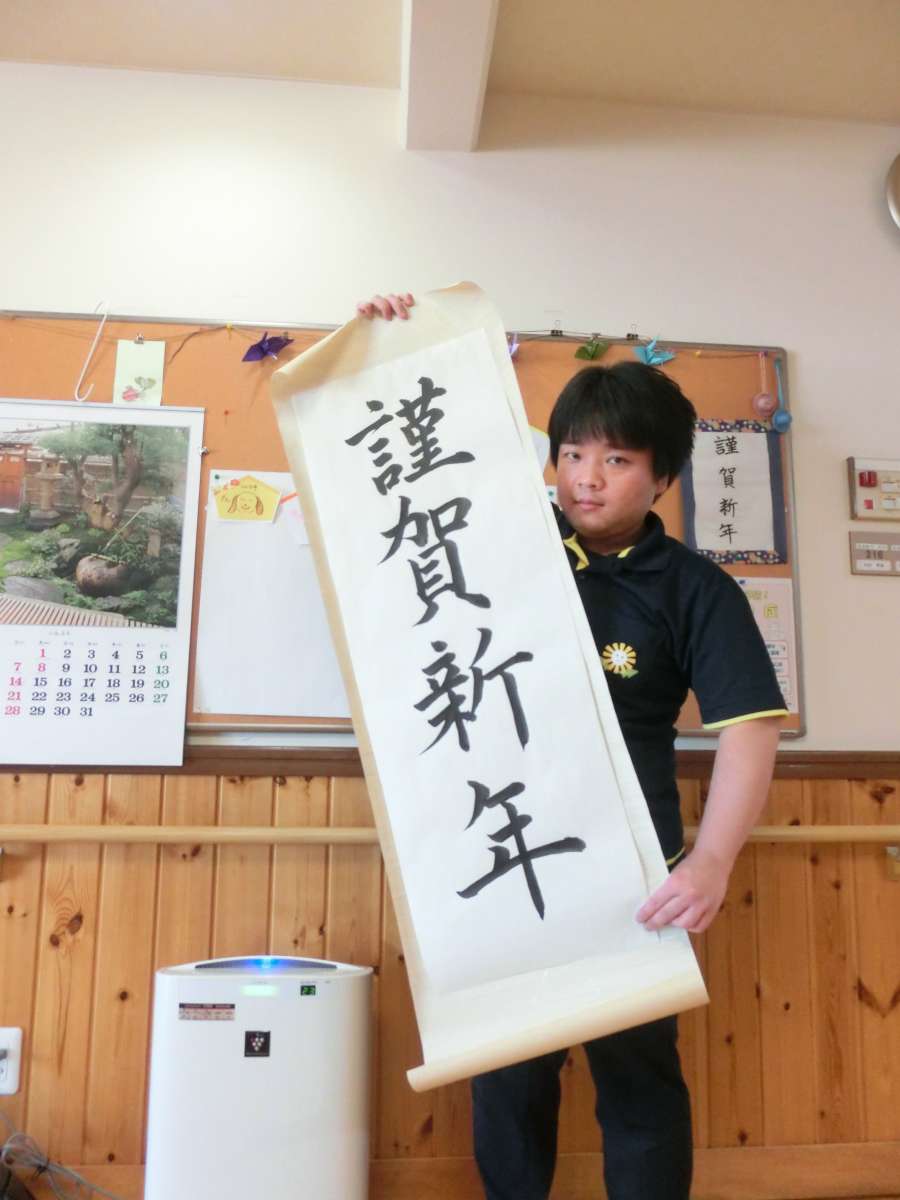 謹賀新年
謹賀新年
1 2 3 4 5 6
7 8 9 10 11 12 13
14 15 16 17 18 19 20
21 22 23 24 25 26 27
28 29 30 31
23